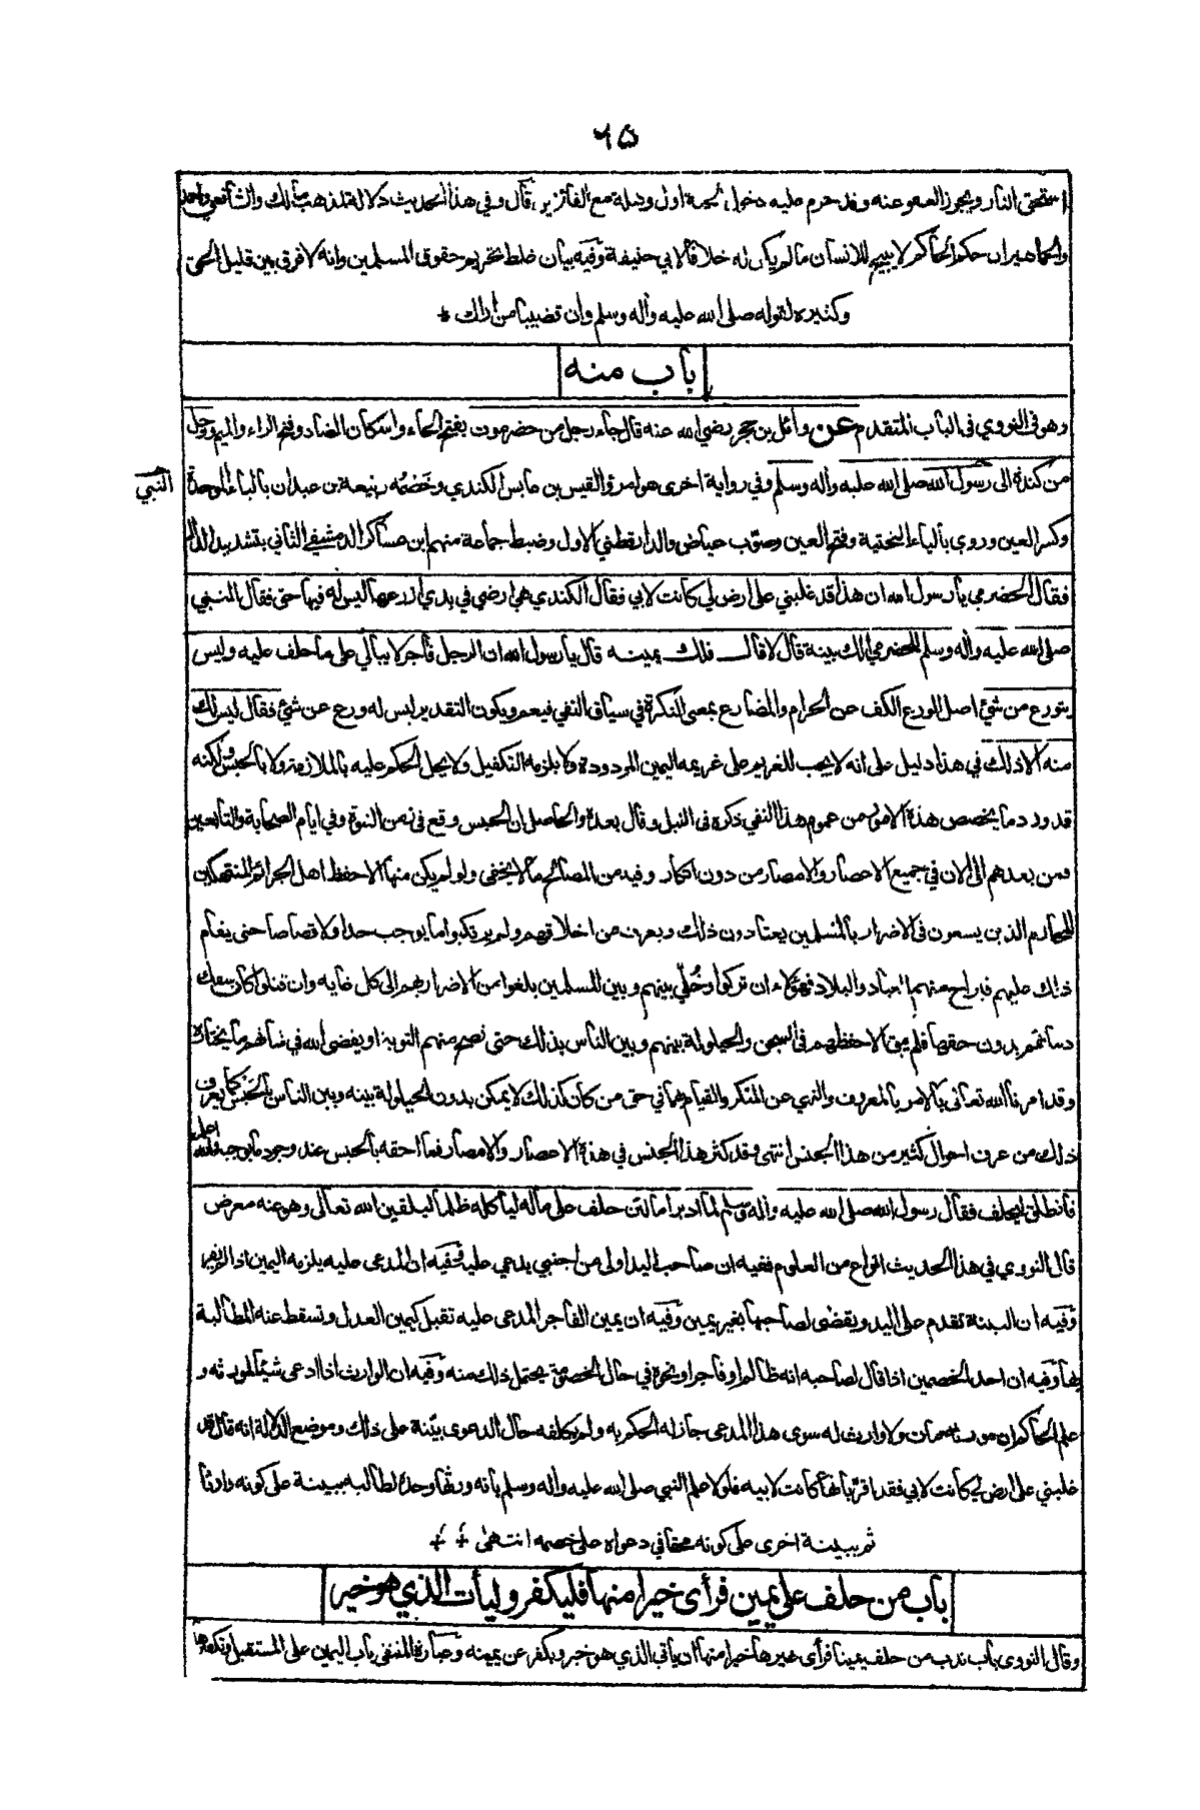 ٦٥
استحق النار ويجوز العفو عنه وقد حرم عليه دخول الجنة اول وهلة مع الفائزين قال وفي هذا الحديث دلالة لمذهب مالك والشافعي واحمد
والجماهير ان حكم الحاكم لا يبيح للانسان ما لم يكن له خلافا لابي حنيفة وفيه بيان غلظ تحريم حقوق المسلمين وانه لا فرق بين قليل الحق
وكثيره لقوله صلى الله عليه وآله وسلم وان قضيبا من اراك
باب منه
وهو في النووي في الباب المتقدم عن وائل بن حجر رضي الله عنه قال جاء رجل من حضرموت بفتح الحاء واسكان الضاد وفتح الراء والميم ورجل
من كندة الى رسول الله صلى الله عليه وآله وسلم وفي رواية اخرى هو امرؤ القيس بن عابس الكندي وخَصْمُه ربيعة بن عبدان بالباء الموحدة
النبي
وكسر العين وروي بالياء التحتية وفتح العين وصوّب عياض والدارقطني الاول وضبط جماعة منهم ابن عساكر الدمشقي الثاني بتشديد الدال
فقال الحضرمي يا رسول الله ان هذا قد غلبني على ارض لي كانت لابي فقال الكندي هي ارضي في يدي ازرعها ليس له فيها حق فقال النبي
صلى الله عليه وآله وسلم للحضرمي الك بينة قال لا قال فلك يمينه قال يا رسول الله ان الرجل فاجر لا يبالي على ما حلف عليه وليس
يتورع من شيء اصل الورع الكف عن الحرام والمضارع بمعنى النكرة في سياق النفي فيعم ويكون التقدير ليس له ورع عن شيء فقال ليس لك
منه الا ذلك في هذا دليل على انه لا يجب للغريم على غريمه اليمين المردودة ولا يلزمه التكفيل ولا يحل الحكم عليه بالملازمة ولا بالحبس ولكنه
قد ورد ما يخصص هذه الامور من عموم هذا النفي ذكره في النيل وقال بعده والحاصل ان الحبس وقع في زمن النبوة وفي ايام الصحابة والتابعين
فمن بعدهم الى الان في جميع الاعصار والامصار من دون انكار وفيه من المصالح ما لا يخفى ولو لم يكن منها الا حفظ اهل الجرائم المنتهكين
للمحارم الذين يسعون في الاضرار بالمسلمين يعتادون ذلك ويعرف من اخلاقهم ولم يرتكبوا ما يوجب حدا ولا قصاصا حتى يقام
ذلك عليهم فيراح منهم العباد والبلاد فهؤلاء ان تركوا وخُلّي بينهم وبين المسلمين بلغوا من الاضرار بهم الى كل غاية وان قتلوا كان سفك
دمائهم بدون حقها فلم يبق الا حفظهم في السجن والحيلولة بينهم وبين الناس بذلك حتى تصح منهم التوبة او يقضي الله في شانهم ما يختاره
وقد امرنا الله تعالى بالامر بالمعروف والنهي عن المنكر والقيام بهما في حق من كان كذلك لا يمكن بدون الحيلولة بينه وبين الناس بالحبس كما يعرف
ذلك من عرف احوال كثير من هذا الجنس انتهى وقد كثر هذا الجنس في هذه الاعصار والامصار فما احقه بالحبس عند وجود ما يوجبه والله اعلم
فانطلق ليحلف فقال رسول الله صلى الله عليه وآله وسلم لما ادبر اما لئن حلف على ماله لياكله ظلما ليلقين الله تعالى وهو عنه معرض
قال النووي في هذا الحديث انواع من العلوم ففيه ان صاحب اليد اولى من اجنبي يدعي عليه وفيه ان المدعى عليه يلزمه اليمين اذا لم يقر
وفيه ان البينة تقدم على اليد ويقضى لصاحبها بغير يمين وفيه ان يمين الفاجر المدعى عليه تقبل كيمين العدل وتسقط عنه المطالبة
بها وفيه ان احد الخصمين اذا قال لصاحبه انه ظالم او فاجر او نحوه في حال الخصومة يحتمل ذلك منه وفيه ان الوارث اذا ادعى شيئا لمورثه و
علم الحاكم ان مورثه مات ولا وارث له سوى هذا المدعي جاز له الحكم به ولم يكلفه حال الدعوى بيّنة على ذلك وموضع الدلالة انه قال قد
غلبني على ارض لي كانت لابي فقد اقر بانها كانت لابيه فلولا علم النبي صلى الله عليه وآله وسلم بانه ورثها وحده لطالبه ببينة على كونه وارثا
ثم ببينة اخرى على كونه محقا في دعواه على خصمه انتهى
باب من حلف على يمين فرأى خيرا منها فليكفر وليأت الذي هو خير
وقال النووي باب ندب من حلف يمينا فرأى غيرها خيرا منها ان يأتي الذي هو خير ويكفر عن يمينه وعبارة المنتقى باب اليمين على المستقبل وتكفيرها